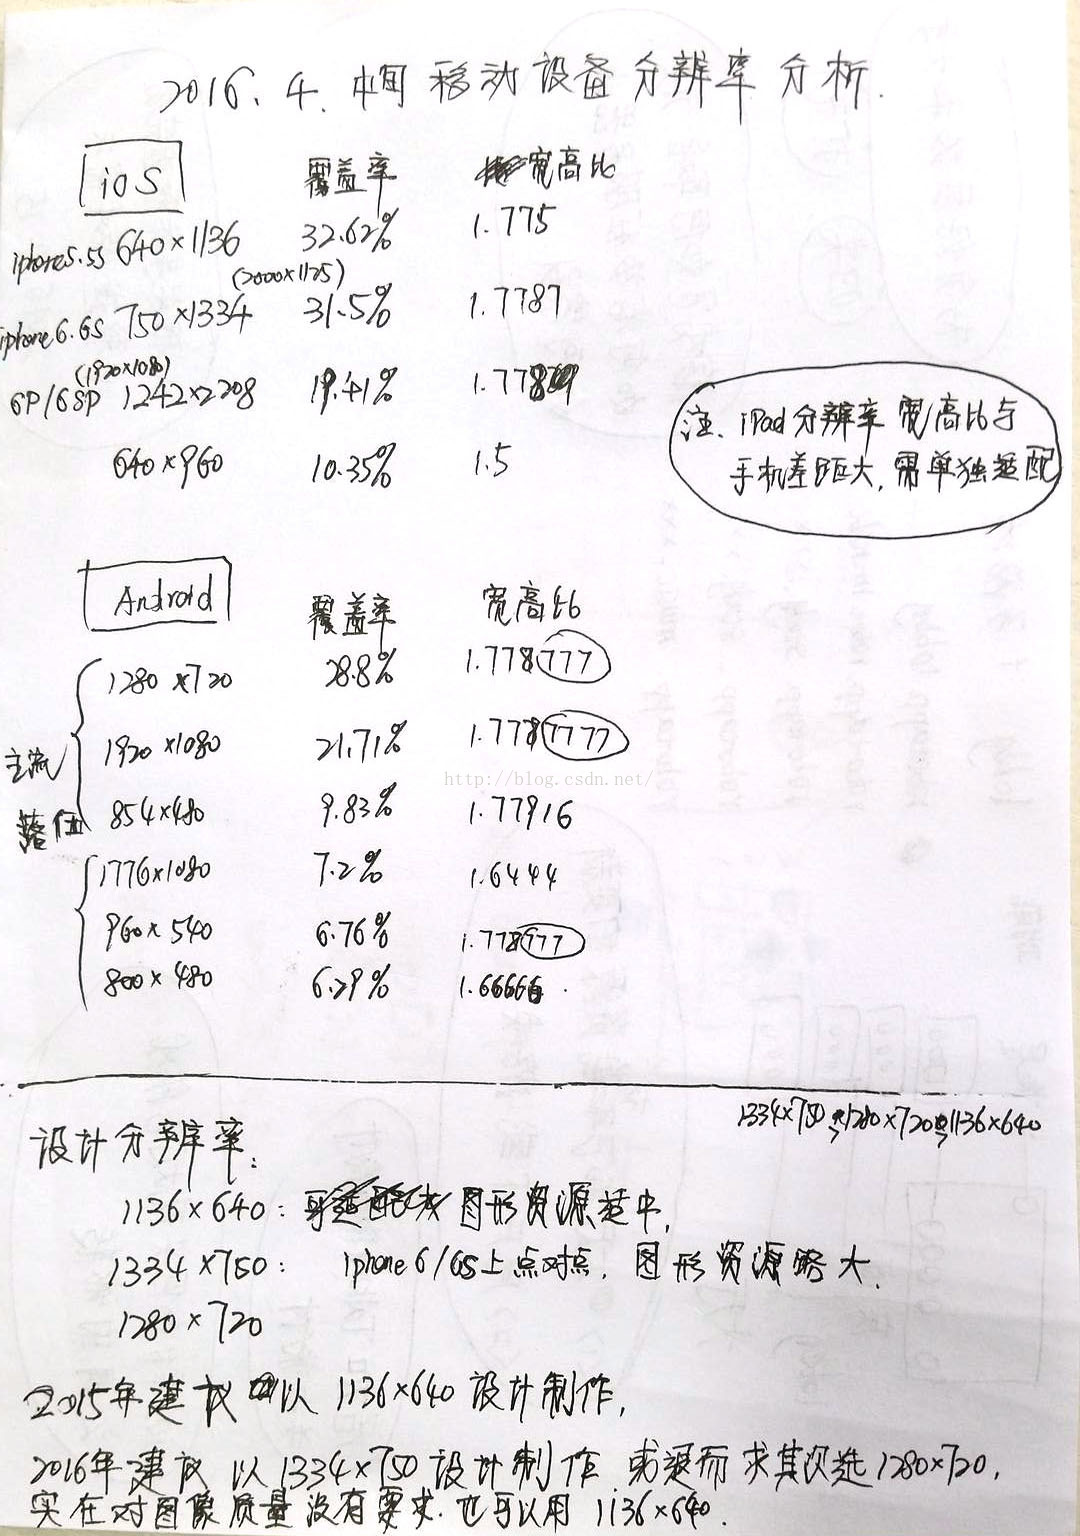 2016.4.中国移动设备分辨率分析.
iOS 覆盖率 宽高比
iphone5.5s 640×1136 32.62% 1.775
(2000×1125)
iphone6.6s 750×1334 31.5% 1.7787
(1920×1080)
6P/6SP 1242×2208 19.41% 1.77
640×960 10.35% 1.5
注. iPad分辨率宽高比与
手机差距大,需单独适配
Android 覆盖率 宽高比
1280×720 28.8% 1.778777
1920×1080 21.71% 1.7787777
主流
854×480 9.83% 1.77916
1776×1080 7.2% 1.6444
960×540 6.76% 1.778777
800×480 6.29% 1.6666
http://blog.csdn.net/
1334×750 1280×720 1136×640
设计分辨率:
1136×640: 图形资源适中,
1334×750: iphone6/6s上点对点. 图形资源略大.
1280×720
2015年建议 以1136×640设计制作,
2016年建议 以1334×750设计制作 或退而求其次选1280×720,
实在对图像质量没有要求.也可以用1136×640.